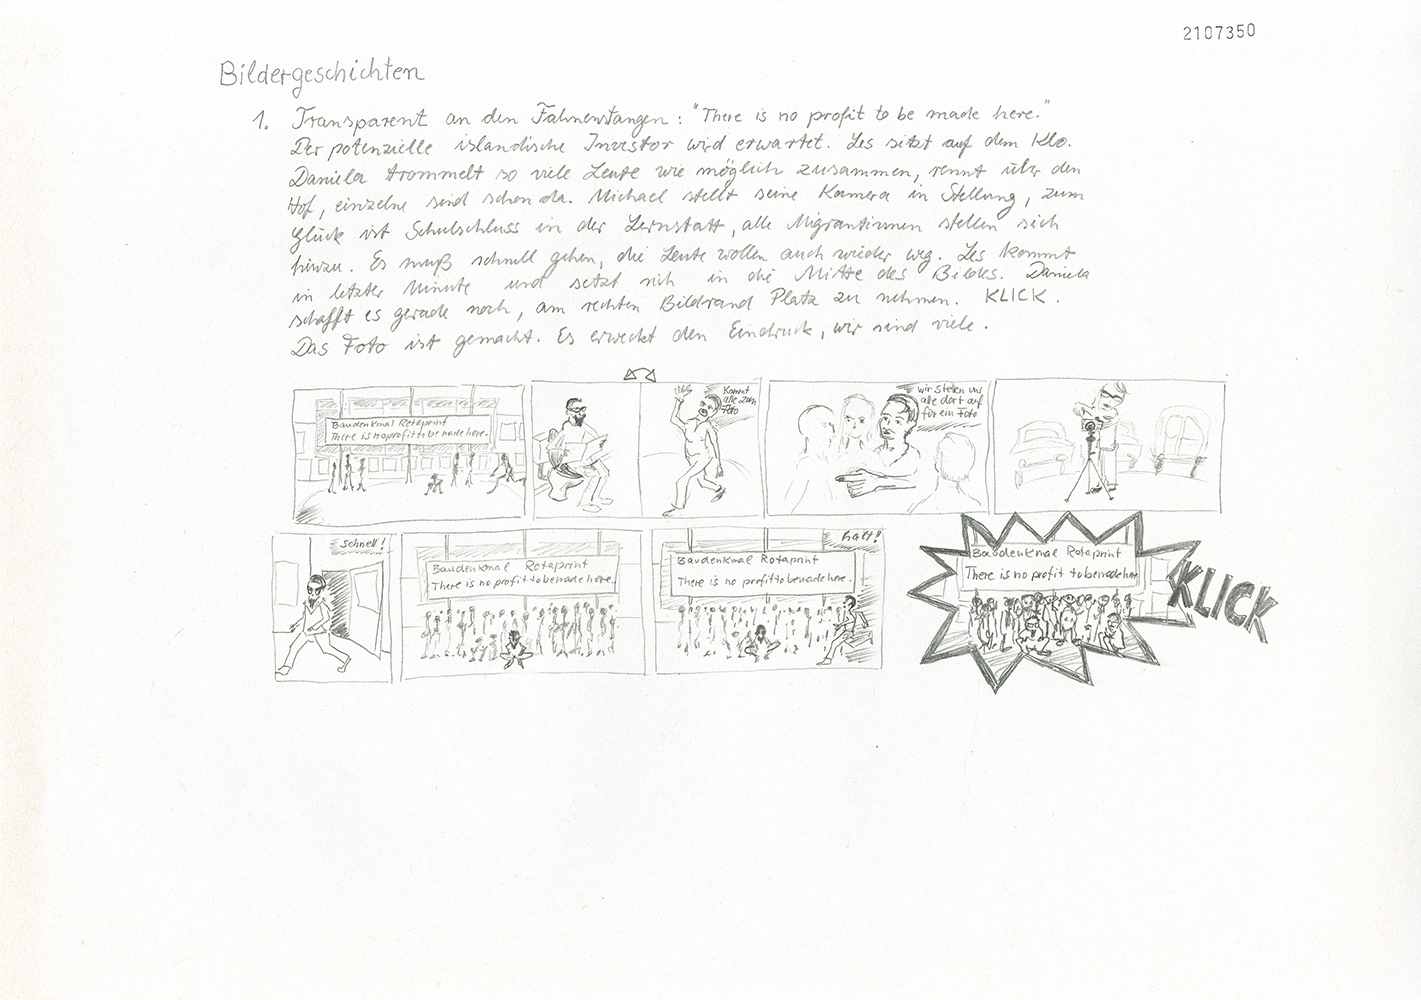 2107350
Bildergeschichten
1. Transparent an den Fahnenstangen: "There is no profit to be made here."
Der potenzielle isländische Investor wird erwartet. Les sitzt auf dem Klo.
Daniela trommelt so viele Leute wie möglich zusammen, rennt über den
Hof, einzelne sind schon da. Michael stellt seine Kamera in Stellung, zum
Glück ist Schulschluss in der Lernstatt, alle Migrantinnen stellen sich
hinzu. Es muß schnell gehen, die Leute wollen auch wieder weg. Les kommt
in letzter Minute und setzt sich in die Mitte des Bildes. Daniela
schafft es gerade noch, am rechten Bildrand Platz zu nehmen. KLICK.
Das Foto ist gemacht. Es erweckt den Eindruck, wir sind viele.
Baudenkmal Rotaprint
There is no profit to be made here.
Kommt
alle zum
Foto
wir stellen uns
alle dort auf
für ein Foto
schnell!
Baudenkmal Rotaprint
There is no profit to be made here.
halt!
Baudenkmal Rotaprint
There is no profit to be made here.
Baudenkmal Rotaprint
There is no profit to be made here
KLICK